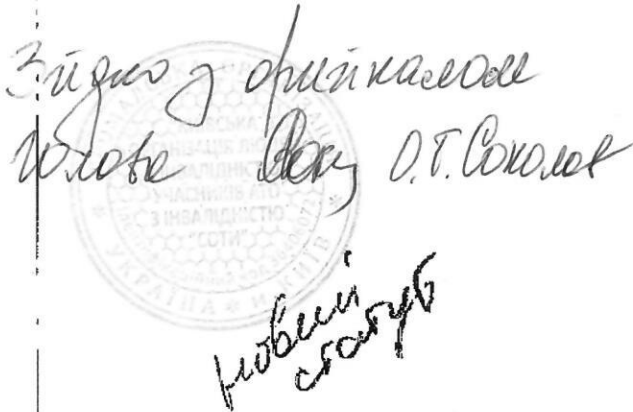 Згідно з оригіналом
Голова О.Т. Соколов
КИЇВСЬКА
ОРГАНІЗАЦІЯ
УЧАСНИКІВ АТО
З ІНВАЛІДНІСТЮ
"СОТИ"
УКРАЇНА * м. КИЇВ *
новий
статут